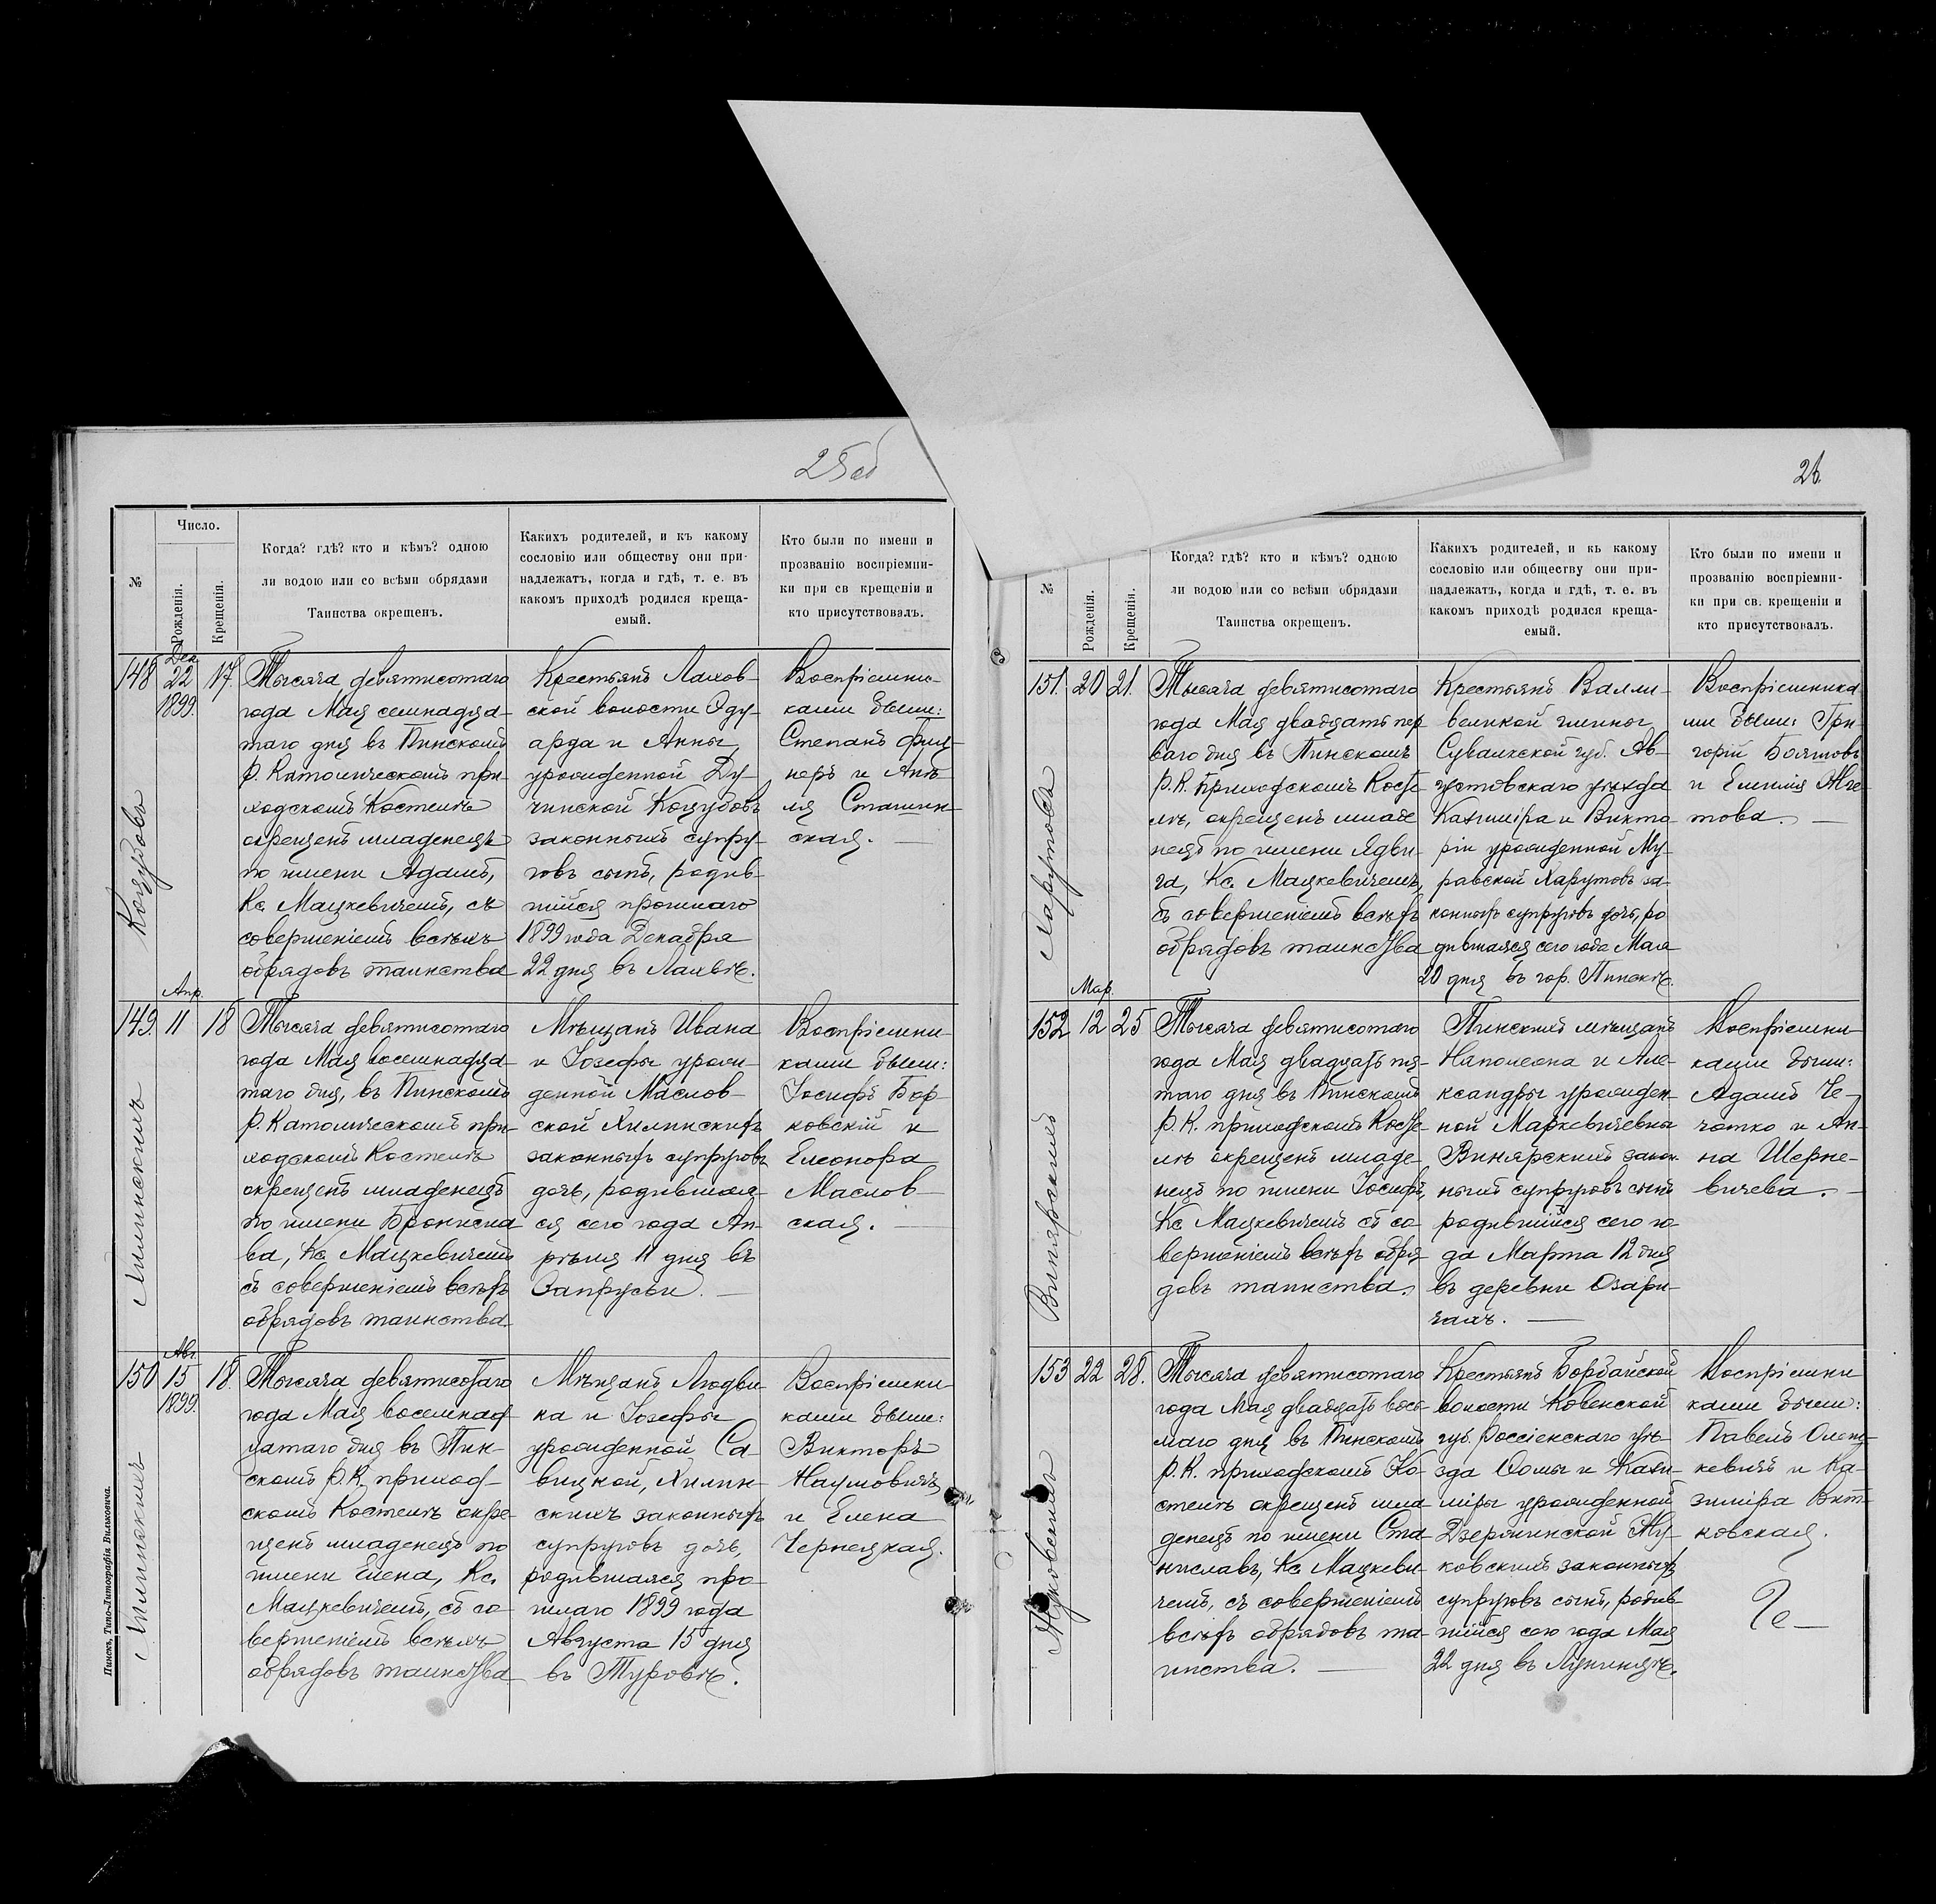 25об
№
Число.
Рожденія.
Крещенія.
Когда? гдѣ? кто и кѣмъ? одною
ли водою или со всѣми обрядами
Таинства окрещенъ.
Каких­ъ родителей, и къ какому
сословію или обществу они при-
надлежатъ, когда и гдѣ, т. е. въ
какомъ приходѣ родился креща-
емый.
Кто были по имени и
прозванію воспріемни-
ки при св крещеніи и
кто присутствовалъ.
148
Дек.
22
1899.
17.
Тысяча девятисотаго
года Мая семнадца-
таго дня въ Пинскомъ
Р. Католическомъ при-
ходскомъ Костелѣ
окрещенъ младенецъ
по имени Адамъ,
Кс. Мацкевичемъ, съ
совершеніемъ всѣхъ
обрядовъ таинства
Крестьянъ Лахов-
ской волости Эду-
арда и Анны
урожденной Ду-
чинской Коцубовъ
законныхъ супру-
говъ сынъ, родив-
шійся прошлаго
1899 года Декабря
22 дня въ Лахвѣ.
Воспріемни-
ками были:
Степанъ
неръ и
ская.
149.
Апр.
11
18
Хилинскихъ
Тысяча девятисотаго
года Мая восемнадца-
таго дня, въ Пинскомъ
Р. Католическомъ при-
ходскомъ Костелѣ
окрещенъ младенецъ
по имени Бронисла
ва, Кс. Мацкевичемъ
съ совершеніемъ всѣхъ
обрядовъ таинства.
Мѣщанъ Ивана
и Іозефы урож-
денной Маслов-
ской Хилинскихъ
законныхъ супруговъ
дочь, родившая-
ся сего года Ап-
рѣля 11 дня въ
Запрусьи.
Воспріемни-
ками были:
Іосифъ Бор-
ковскій и
Елеонора
Маслов-
ская.
150
Авг.
15
1899.
18.
Хилинскихъ
Тысяча девятисотаго
года Мая восемнад-
цатаго дня въ Пин-
скомъ Р. К. приход-
скомъ Костелѣ окре-
щенъ младенецъ по
имени Елена, Кс.
Мацкевичемъ, съ со-
вершеніемъ всѣхъ
обрядовъ таинства
Мѣщанъ Людви-
ка и Іозефы
урожденной Са-
вицкой, Хилин-
скихъ законныхъ
супруговъ дочь,
родившаяся про-
шлаго 1899 года
Августа 15 дня
въ Туровѣ.
Воспріемни-
ками были:
Викторъ
Наумовичъ
и Елена
Чернецкая.
Пинскъ, Типо-Литографія Вильковича.
26.
№
Рожденія.
Крещенія.
Когда? гдѣ? кто и кѣмъ? одною
ли водою или со всѣми обрядами
Таинства окрещенъ.
Какихъ родителей, и къ какому
сословію или обществу они при-
надлежатъ, когда и гдѣ, т. е. въ
какомъ приходѣ родился креща-
емый.
Кто были по имени и
прозванію воспріемни-
ки при св. крещеніи и
кто присутствовалъ.
151.
20
21.
Харутовъ
Тысяча девятисотаго
года Мая двадцать пер
ваго дня въ Пинскомъ
Р. К. приходскомъ Косте-
лѣ, окрещенъ младе
нецъ по имени Ядви-
га, Кс. Мацкевичемъ,
съ совершеніемъ всѣхъ
обрядовъ таинства
Крестьянъ Валли-
великой гмины
Сувалкской губ. Ав-
густовскаго уѣзда
Казиміра и Викто-
ріи урожденной Му-
равской Харутовъ за-
конныхъ супруговъ дочь, ро
дившаяся сего года Мая
20 дня въ гор. Пинскѣ.
Воспріемника
ми были: Гри-
горій
и Емилія
това.
152
Мар.
12
25
Винярскихъ
Тысяча девятисотаго
года Мая двадцать пя-
таго дня въ Пинскомъ
Р. К. приходскомъ Косте-
лѣ окрещенъ младе-
нецъ по имени Іосифъ,
Кс. Мацкевичемъ съ со-
вершеніемъ всѣхъ обря-
довъ таинства.
Пинскихъ мѣщанъ
Наполеона и Але-
ксандры урожден-
ной Маркевичевна
Винярскихъ закон-
ныхъ супруговъ сынъ
родившійся сего го-
да Марта 12 дня
въ деревни Озари-
чахъ.
Воспріемни-
ками были:
Адамъ Че-
чотко и Ан-
на Шерне-
вичева.
153
22
28.
Жуковскихъ
Тысяча девятисотаго
года Мая двадцать вось-
маго дня въ Пинскомъ
Р. К. приходскомъ Ко-
стелѣ окрещенъ мла-
денецъ по имени Ста-
ниславъ, Кс. Мацкеви-
чемъ, съ совершеніемъ
всѣхъ обрядовъ та-
инства.
Крестьянъ
волости Ковенской
губ. Россіенскаго уѣ-
зда Ѳомы и Кази-
міры урожденной
Дзержинской Жу-
ковскихъ законныхъ
супруговъ сынъ, родив-
шійся сего года Мая
22 дня въ Лунинцѣ.
Воспріемни-
ками были:
Павелъ
кевичъ и Ка-
зиміра Вит-
ковская.